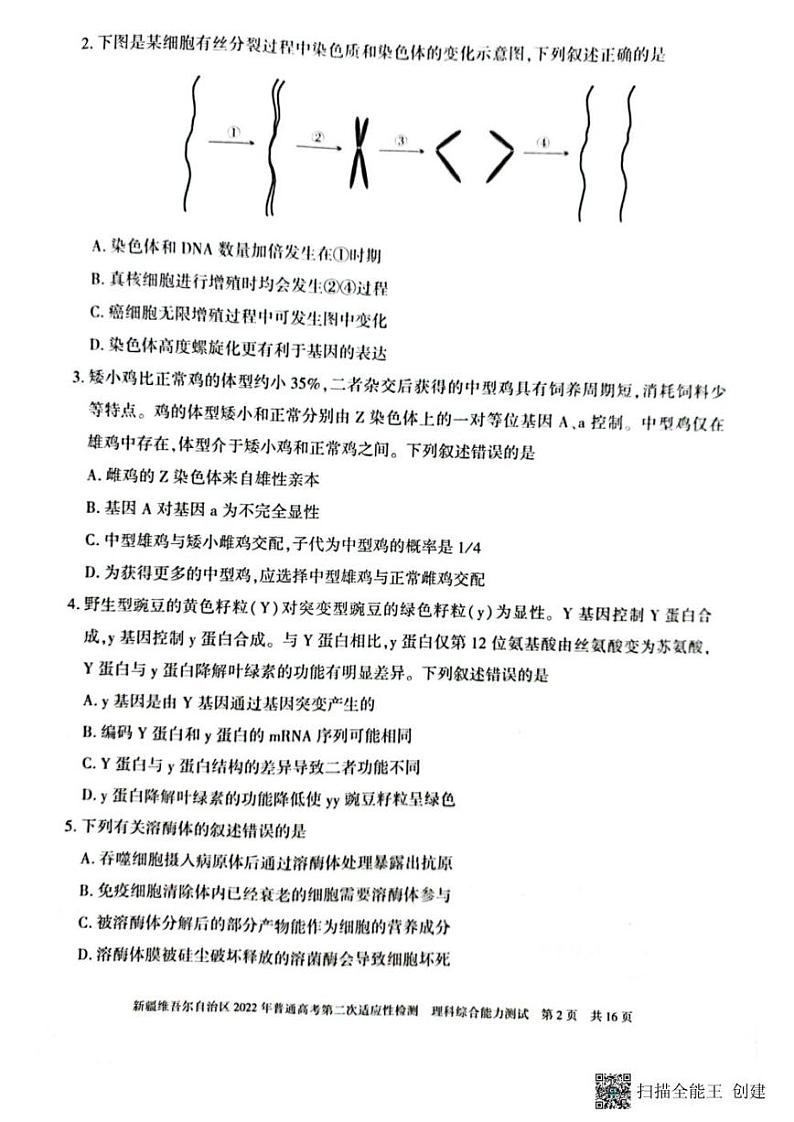 2. 下图是某细胞有丝分裂过程中染色质和染色体的变化示意图,下列叙述正确的是
① ② ③ ④
A. 染色体和 DNA 数量加倍发生在①时期
B. 真核细胞进行增殖时均会发生②④过程
C. 癌细胞无限增殖过程中可发生图中变化
D. 染色体高度螺旋化更有利于基因的表达
3. 矮小鸡比正常鸡的体型约小 35%,二者杂交后获得的中型鸡具有饲养周期短,消耗饲料少
等特点。鸡的体型矮小和正常分别由 Z 染色体上的一对等位基因 A、a 控制。中型鸡仅在
雄鸡中存在,体型介于矮小鸡和正常鸡之间。下列叙述错误的是
A. 雌鸡的 Z 染色体来自雄性亲本
B. 基因 A 对基因 a 为不完全显性
C. 中型雄鸡与矮小雌鸡交配,子代为中型鸡的概率是 1/4
D. 为获得更多的中型鸡,应选择中型雄鸡与正常雌鸡交配
4. 野生型豌豆的黄色籽粒(Y)对突变型豌豆的绿色籽粒(y)为显性。Y 基因控制 Y 蛋白合
成,y 基因控制 y 蛋白合成。与 Y 蛋白相比,y 蛋白仅第 12 位氨基酸由丝氨酸变为苏氨酸,
Y 蛋白与 y 蛋白降解叶绿素的功能有明显差异。下列叙述错误的是
A. y 基因是由 Y 基因通过基因突变产生的
B. 编码 Y 蛋白和 y 蛋白的 mRNA 序列可能相同
C. Y 蛋白与 y 蛋白结构的差异导致二者功能不同
D. y 蛋白降解叶绿素的功能降低使 yy 豌豆籽粒呈绿色
5. 下列有关溶酶体的叙述错误的是
A. 吞噬细胞摄入病原体后通过溶酶体处理暴露出抗原
B. 免疫细胞清除体内已经衰老的细胞需要溶酶体参与
C. 被溶酶体分解后的部分产物能作为细胞的营养成分
D. 溶酶体膜被硅尘破坏释放的溶菌酶会导致细胞坏死
新疆维吾尔自治区 2022 年普通高考第二次适应性检测 理科综合能力测试 第 2 页 共 16 页
扫描全能王 创建